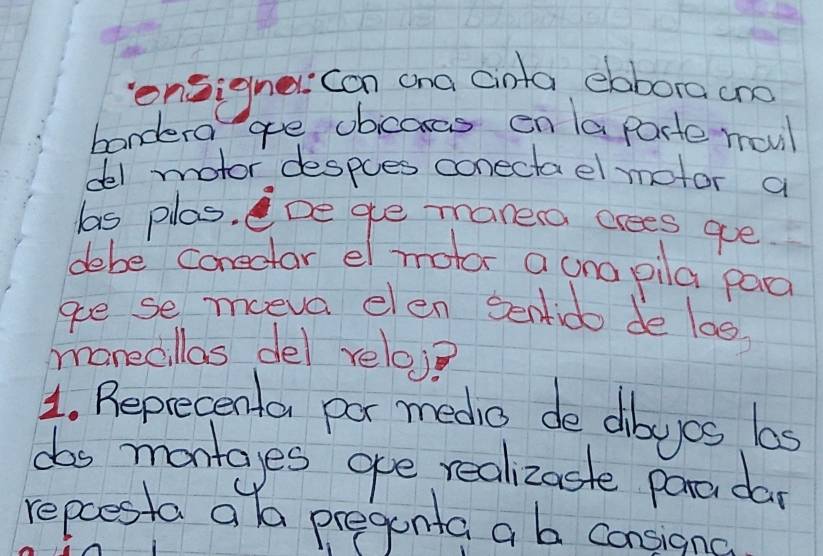 onsigna: Con una cinta elabora una
bandera que ubicaras en la parte movil
del motor despues conecta el motor a
las pilas. ¿De que manera crees que
debe conectar el motor a una pila para
que se mueva el en sentido de las
manecillas del reloj?
1. Reprecenta por medio de dibujos los
dos montajes que realizaste para dar
repuesta a la pregunta a la consigna.